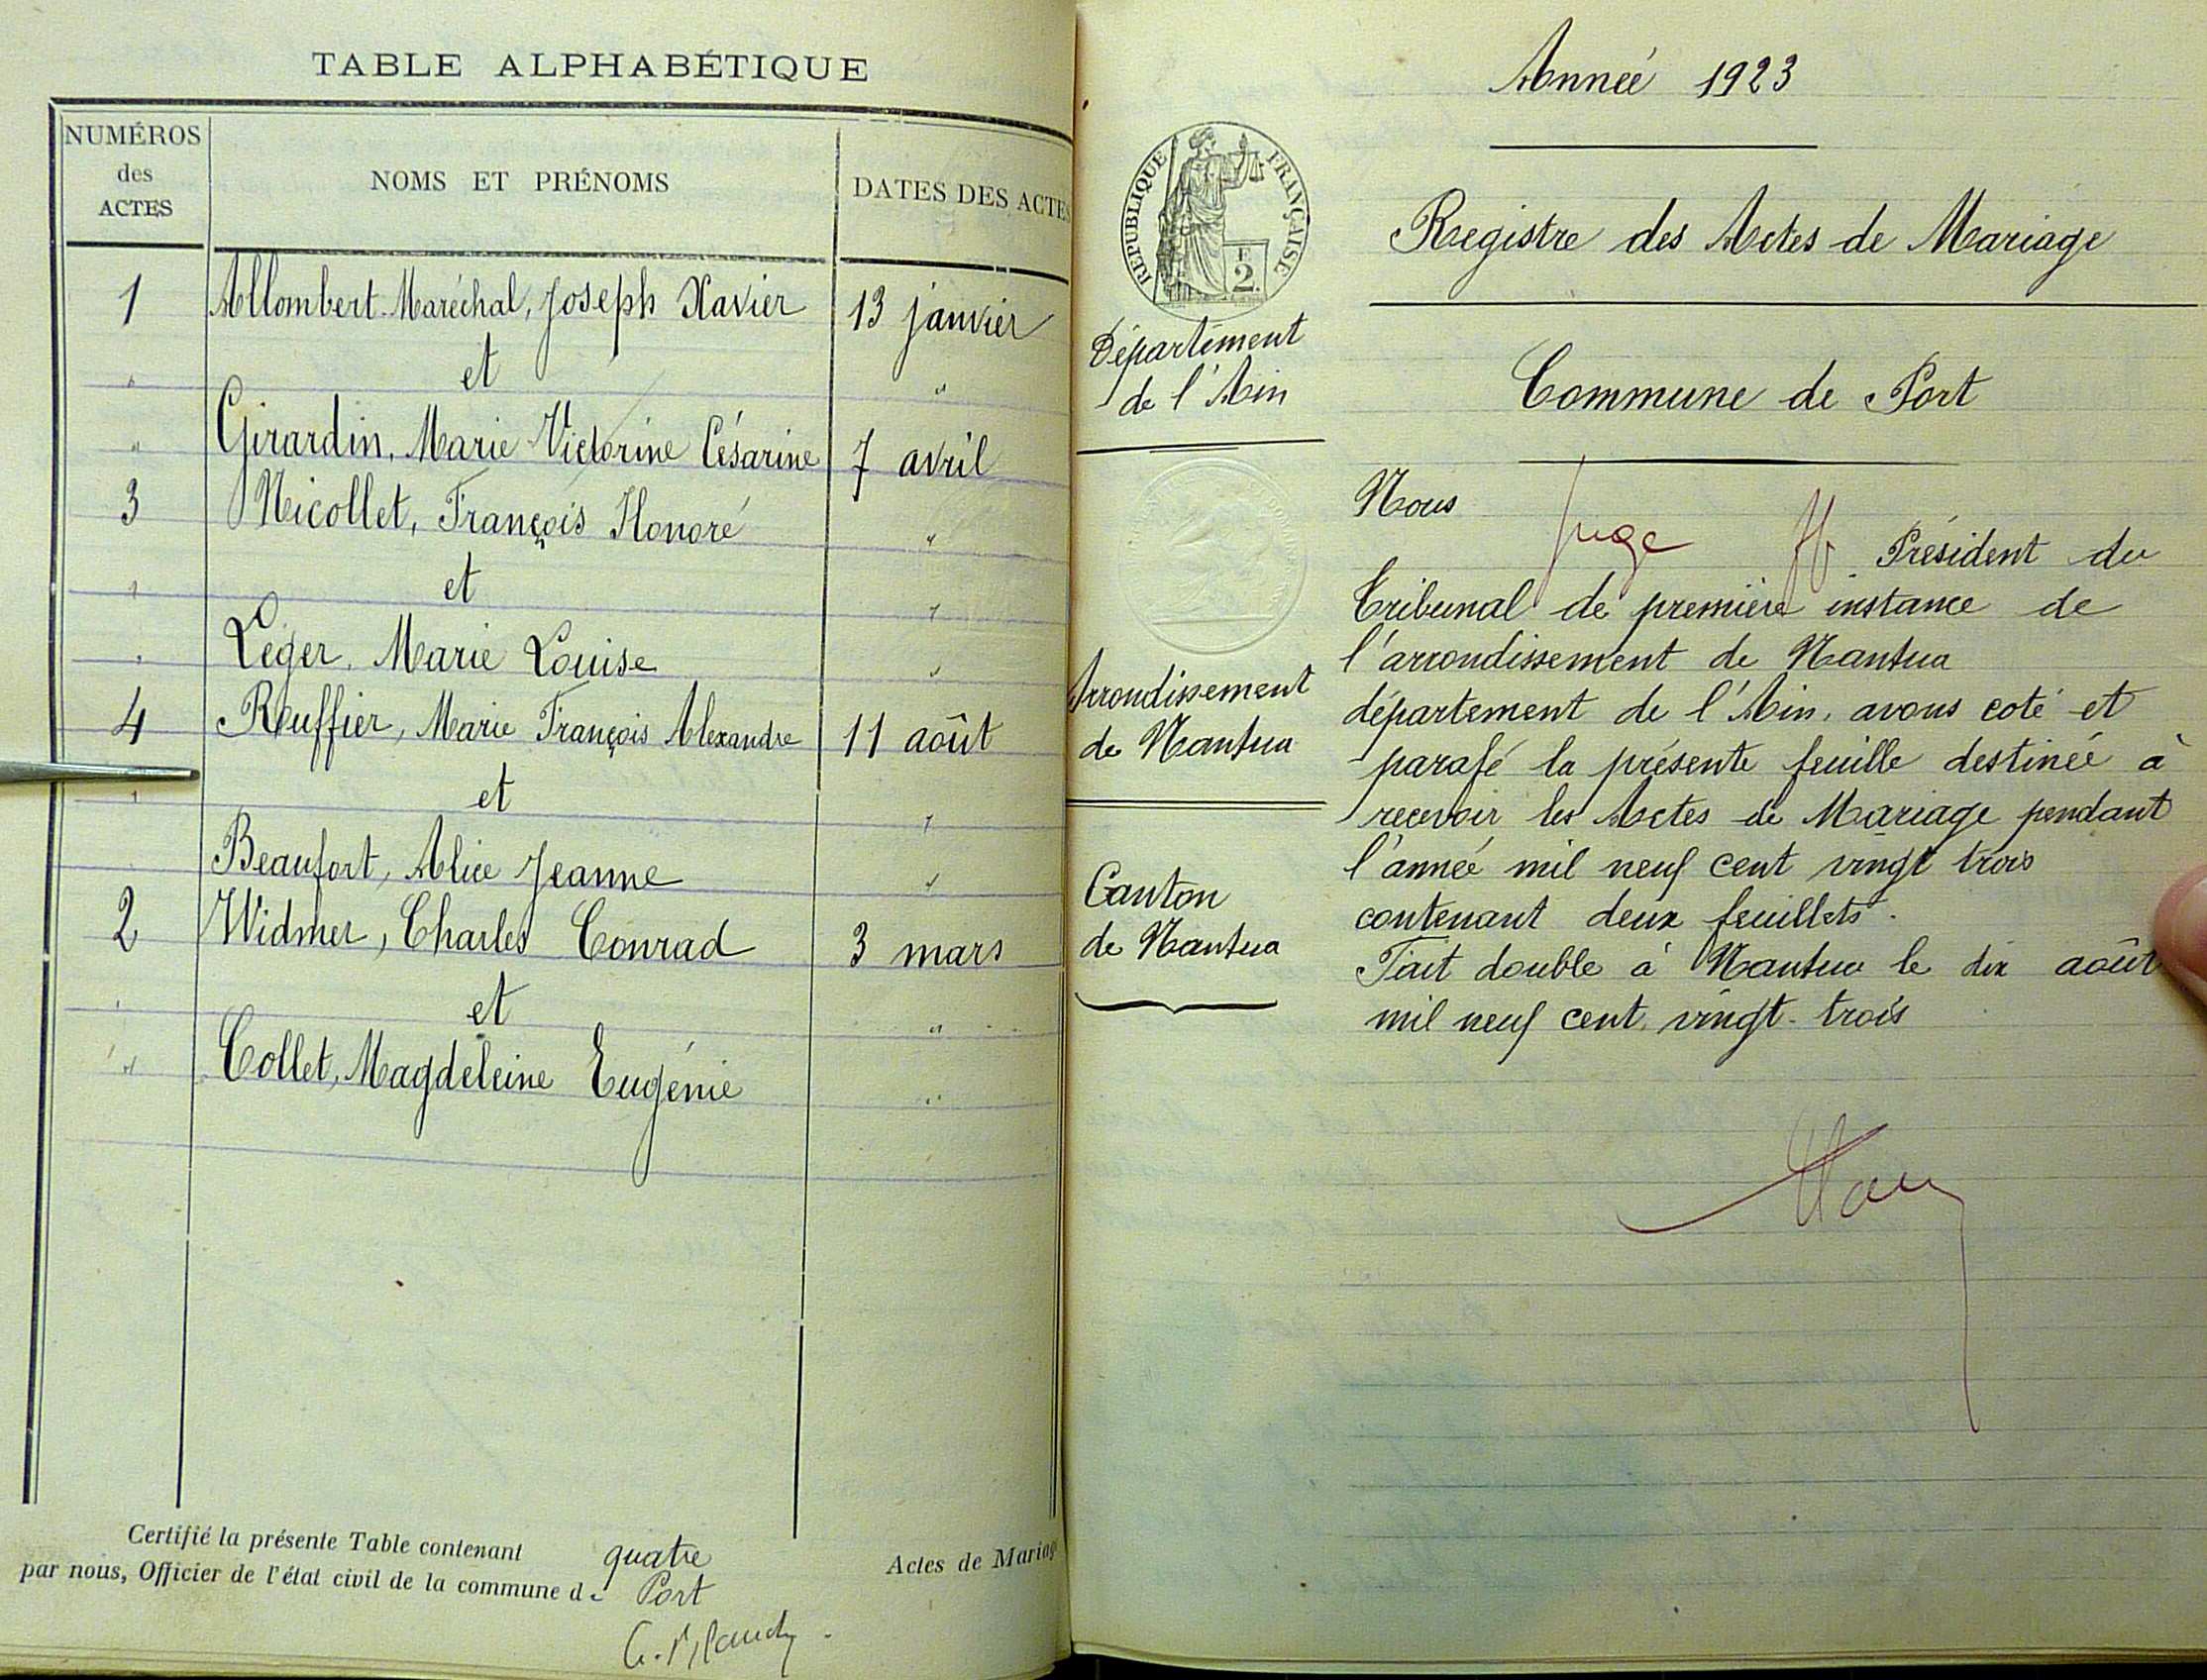 TABLE ALPHABÉTIQUE
NUMÉROS
des
ACTES
NOMS ET PRÉNOMS
DATES DES ACTES
1 Allombert-Maréchal, Joseph Xavier 13 janvier
" et "
" Girardin, Marie Victorine Césarine 7 avril
3 Nicollet, François Honoré "
" et "
" Léger, Marie Louise "
4 Rouffier, Marie François Alexandre 11 août
" et "
" Beaufort, Alice Jeanne "
2 Widmer, Charles Conrad 3 mars
" et "
" Collet, Magdeleine Eugénie "
Certifié la présente Table contenant quatre Actes de Mariag
par nous, Officier de l'état civil de la commune de Port
Année 1923
Registre des Actes de Mariage
Commune de Port
RÉPUBLIQUE FRANÇAISE
2
Département
de l'Ain
Arrondissement
de Nantua
Canton
de Nantua
Nous
juge Président du
Tribunal de première instance de
l'arrondissement de Nantua
département de l'Ain, avons coté et
parafé la présente feuille destinée à
recevoir les Actes de Mariage pendant
l'année mil neuf cent vingt trois
contenant deux feuillets.
Fait double à Nantua le dix août
mil neuf cent vingt-trois